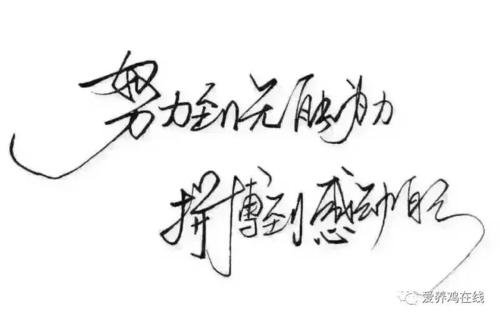 努力到无能为力
拼博到感动自己
爱养鸡在线